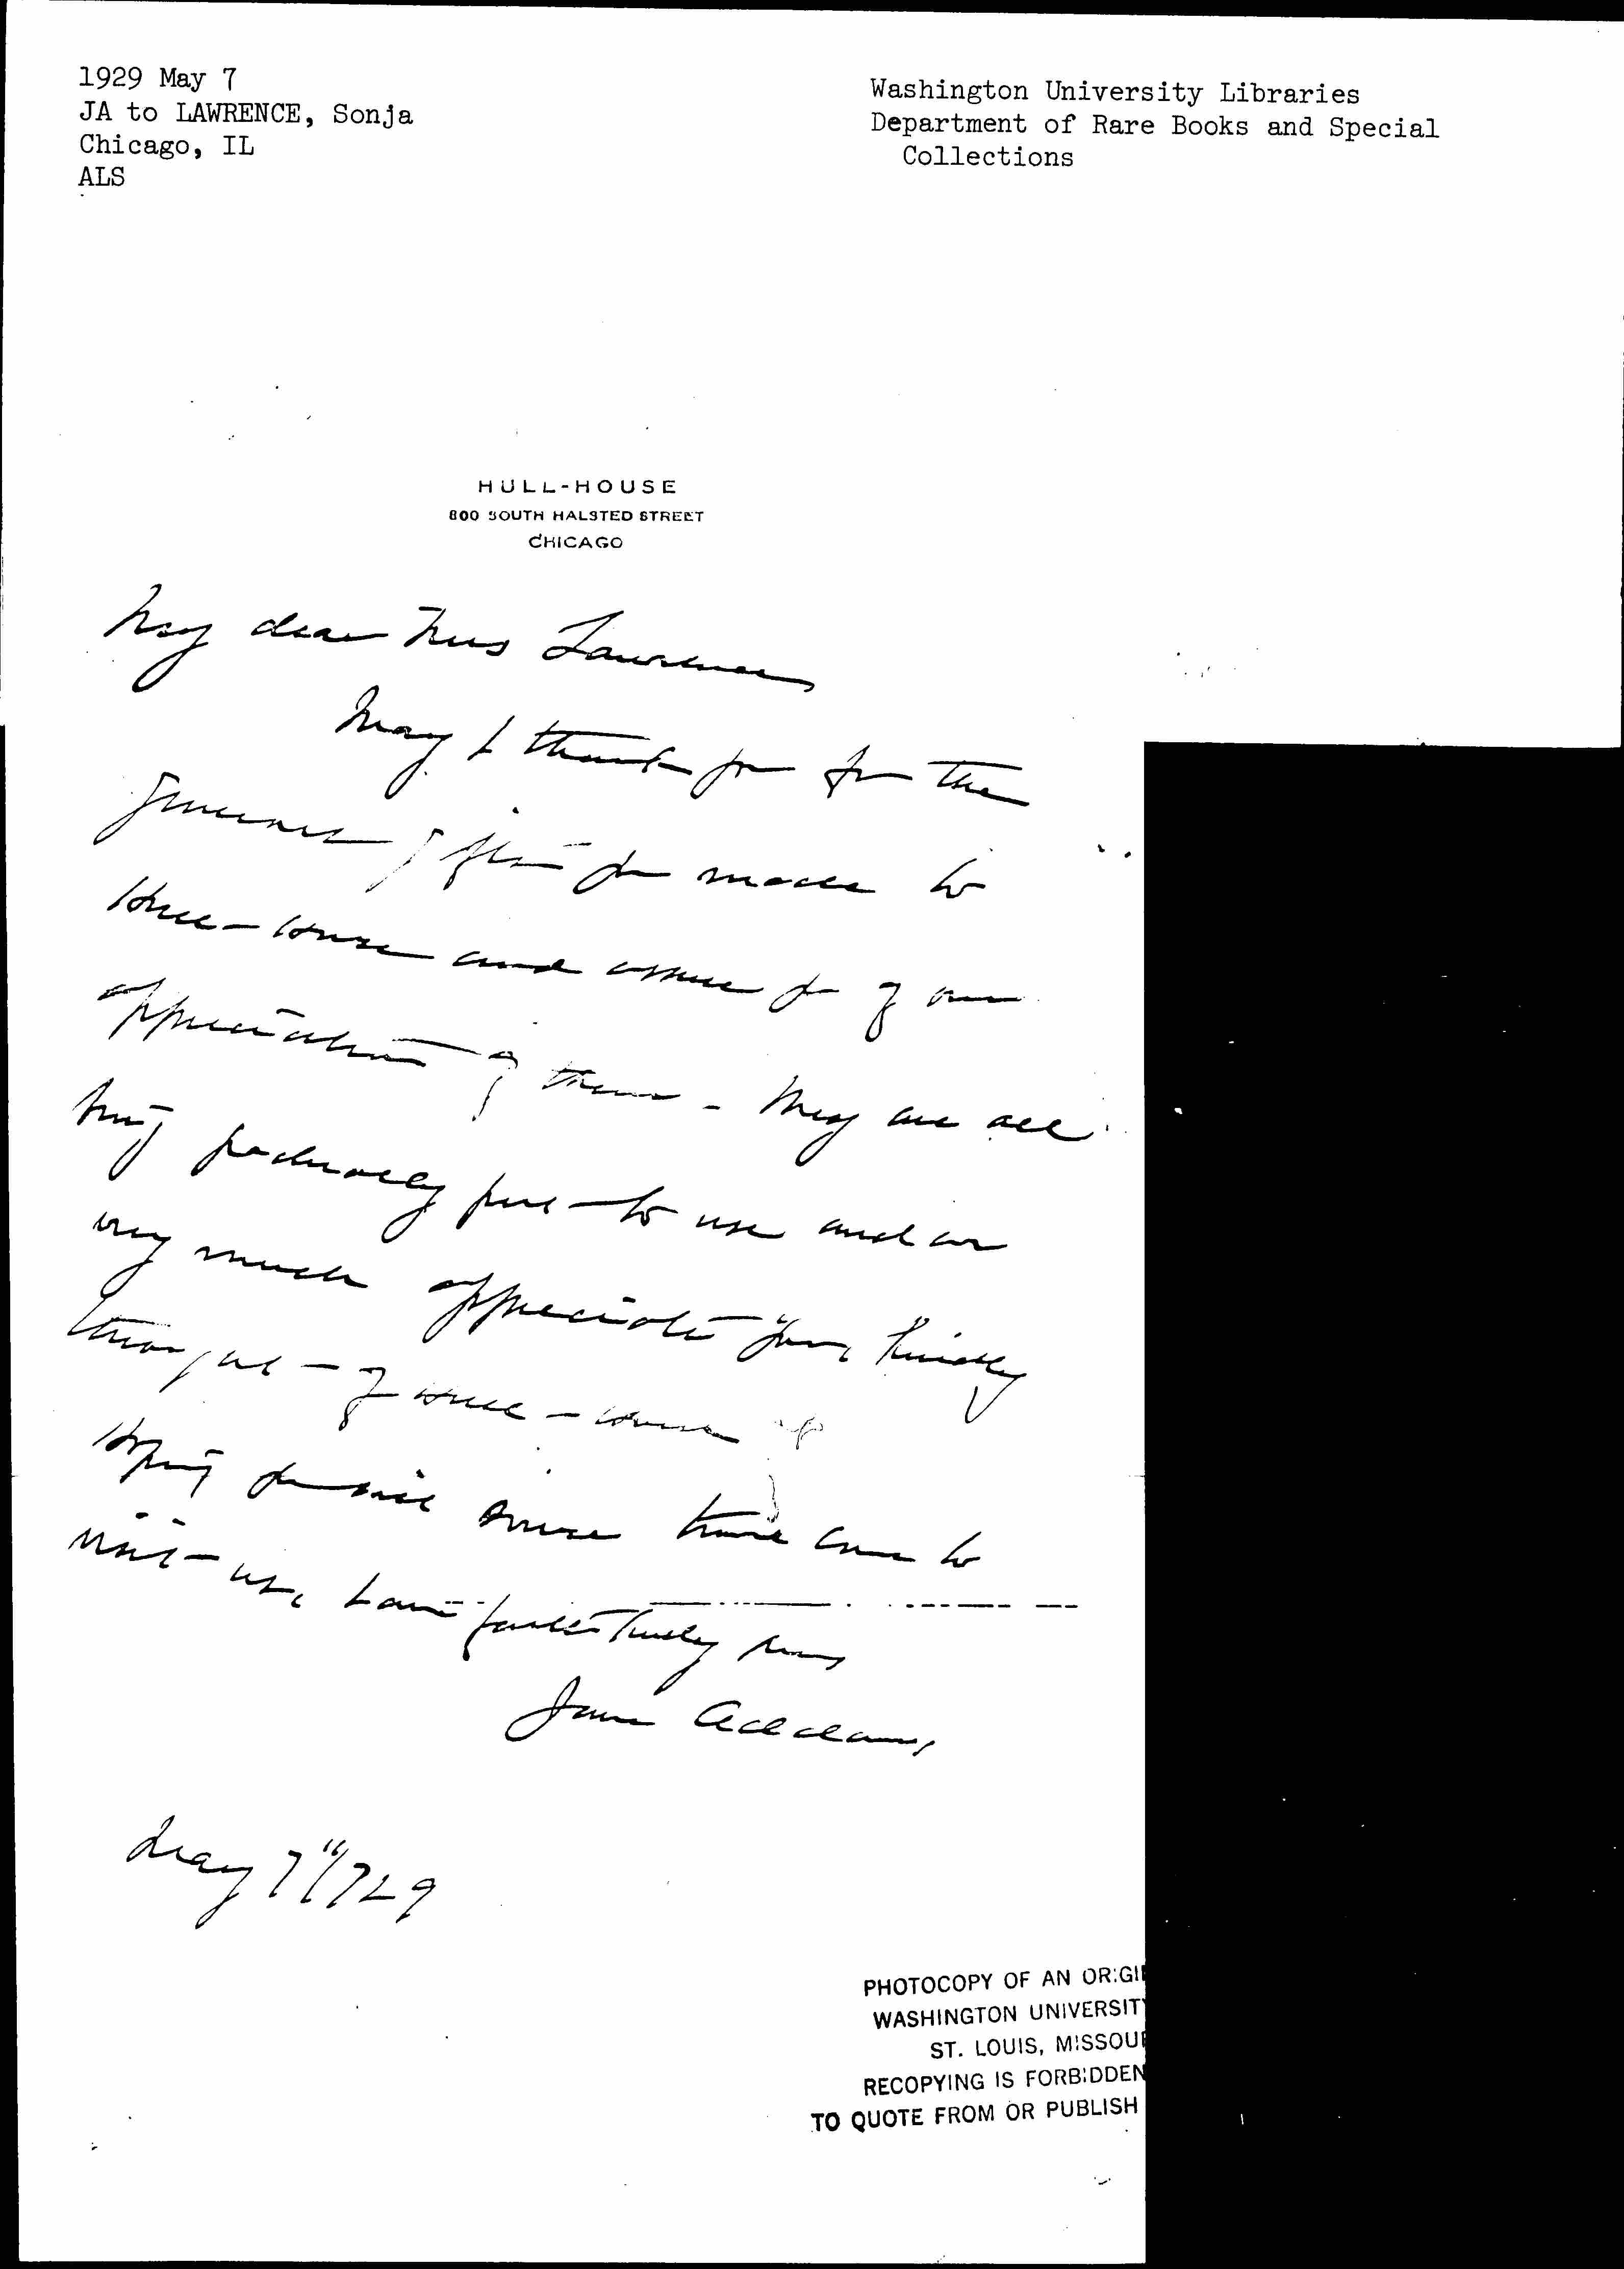 1929 May 7
JA to LAWRENCE, Sonja
Chicago, IL
ALS
Washington University Libraries
Department of Rare Books and Special
Collections
HULL-HOUSE
800 SOUTH HALSTED STREET
CHICAGO
My dear Miss Lawrence
May I thank you for the
generous gift you made to
Hull-House and assure you of our
appreciation of them - They are all
being gradually put to use and we
very much appreciate your kindly
thought of Hull-House
Hoping you will some time come to
visit us, I am faithfully yours
Jane Addams
May 7" 1929
PHOTOCOPY OF AN ORIGI
WASHINGTON UNIVERSIT
ST. LOUIS, MISSOU
RECOPYING IS FORBIDDEN
TO QUOTE FROM OR PUBLISH